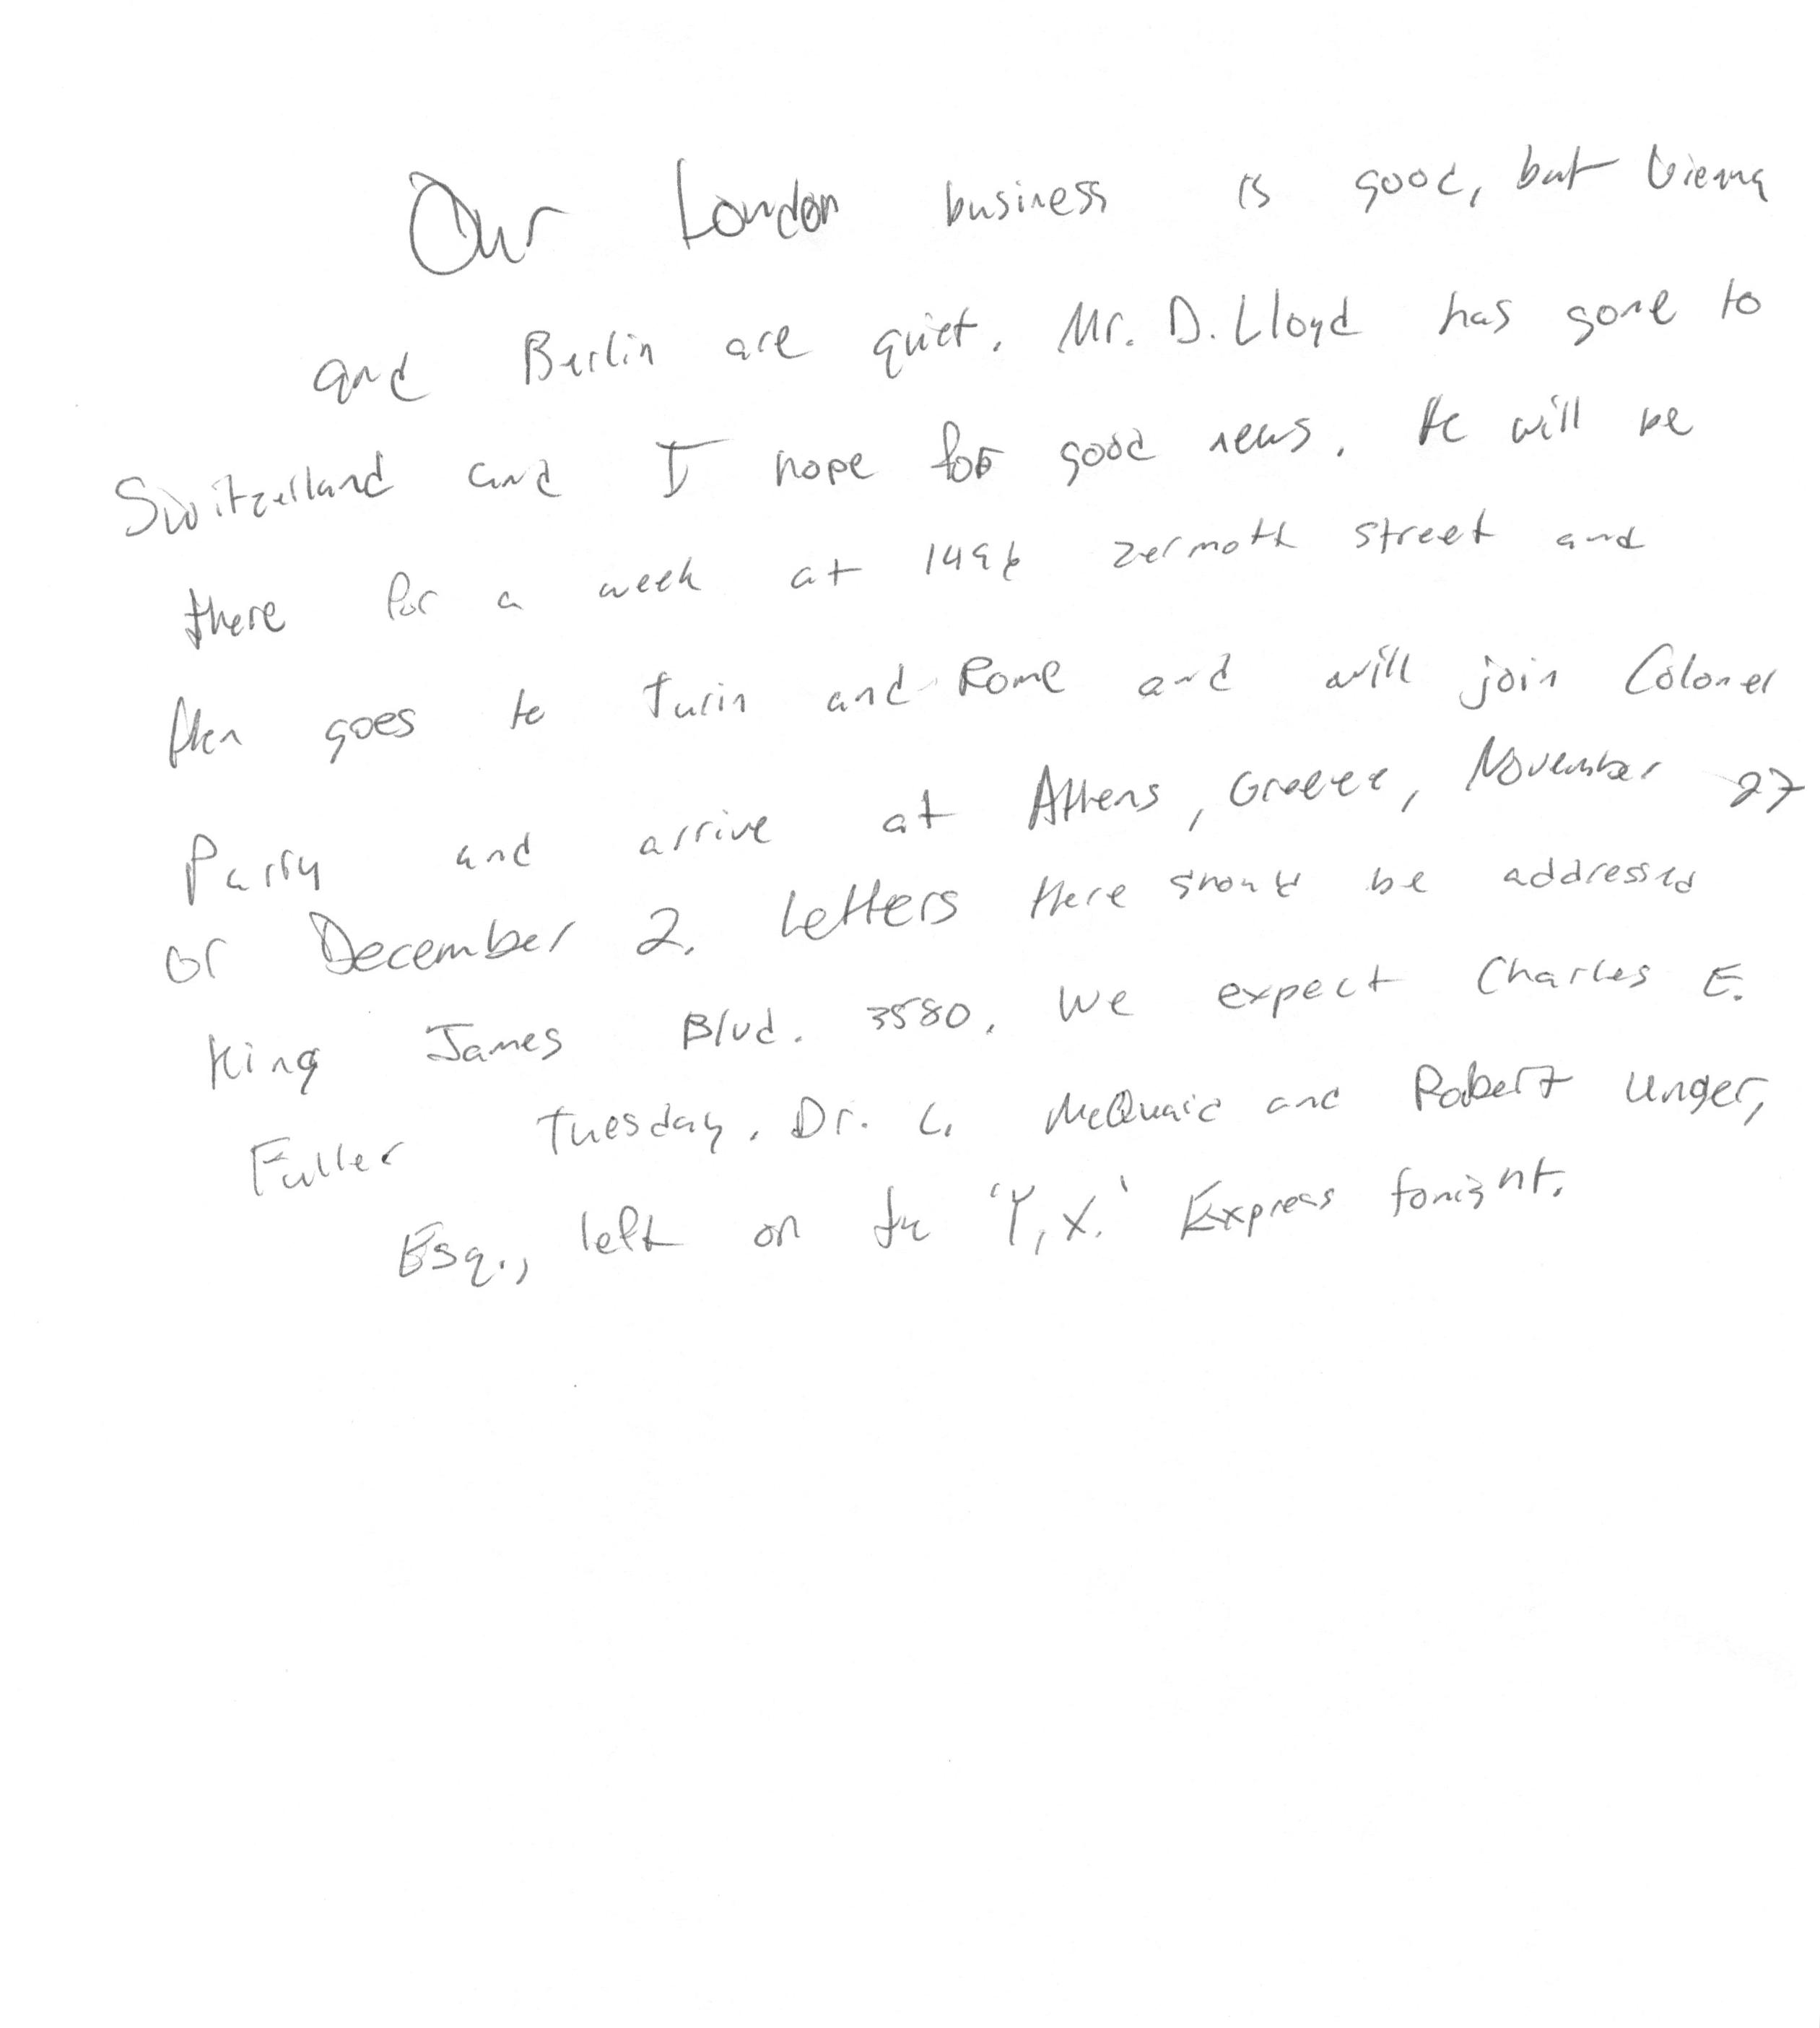 Our London business is good, but Vienna
and Berlin are quiet. Mr. D. Lloyd has gone to
Switzerland and I hope for good news. He will be
there for a week at 1496 zermott street and
then goes to Turin and Rome and will join Colonel
Parry and arrive at Athens, Greece, November 27
or December 2. Letters there should be addressed
King James Blvd. 3580. We expect Charles E.
Fuller Tuesday. Dr. L. McQuaid and Robert Unger,
Esq., left on the 'Y, X.' Express tonight.